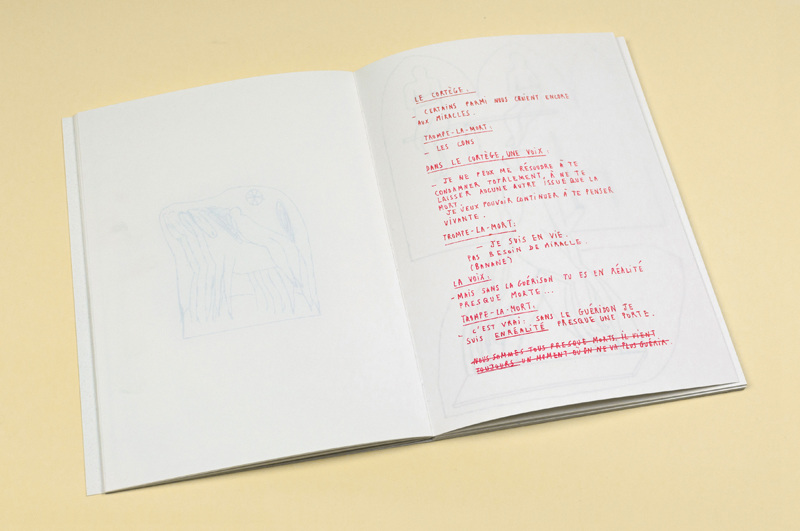 LE CORTÈGE.
- CERTAINS PARMI NOUS CROIENT ENCORE
AUX MIRACLES.
TROMPE-LA-MORT:
- LES CONS
DANS LE CORTÈGE, UNE VOIX:
- JE NE PEUX ME RÉSOUDRE À TE
CONDAMNER TOTALEMENT, À NE TE
LAISSER AUCUNE AUTRE ISSUE QUE LA
MORT.
JE VEUX POUVOIR CONTINUER À TE PENSER
VIVANTE.
TROMPE-LA-MORT:
- JE SUIS EN VIE.
PAS BESOIN DE MIRACLE.
(BANANE)
LA VOIX:
- MAIS SANS LA GUÉRISON TU ES EN RÉALITÉ
PRESQUE MORTE...
TROMPE-LA-MORT:
- C'EST VRAI: SANS LE GUÉRIDON JE
SUIS ENRÉALITÉ PRESQUE UNE PORTE.
NOUS SOMMES TOUS PRESQUE MORTS. IL VIENT
TOUJOURS UN MOMENT OÙ ON NE VA PLUS GUÉRIR.